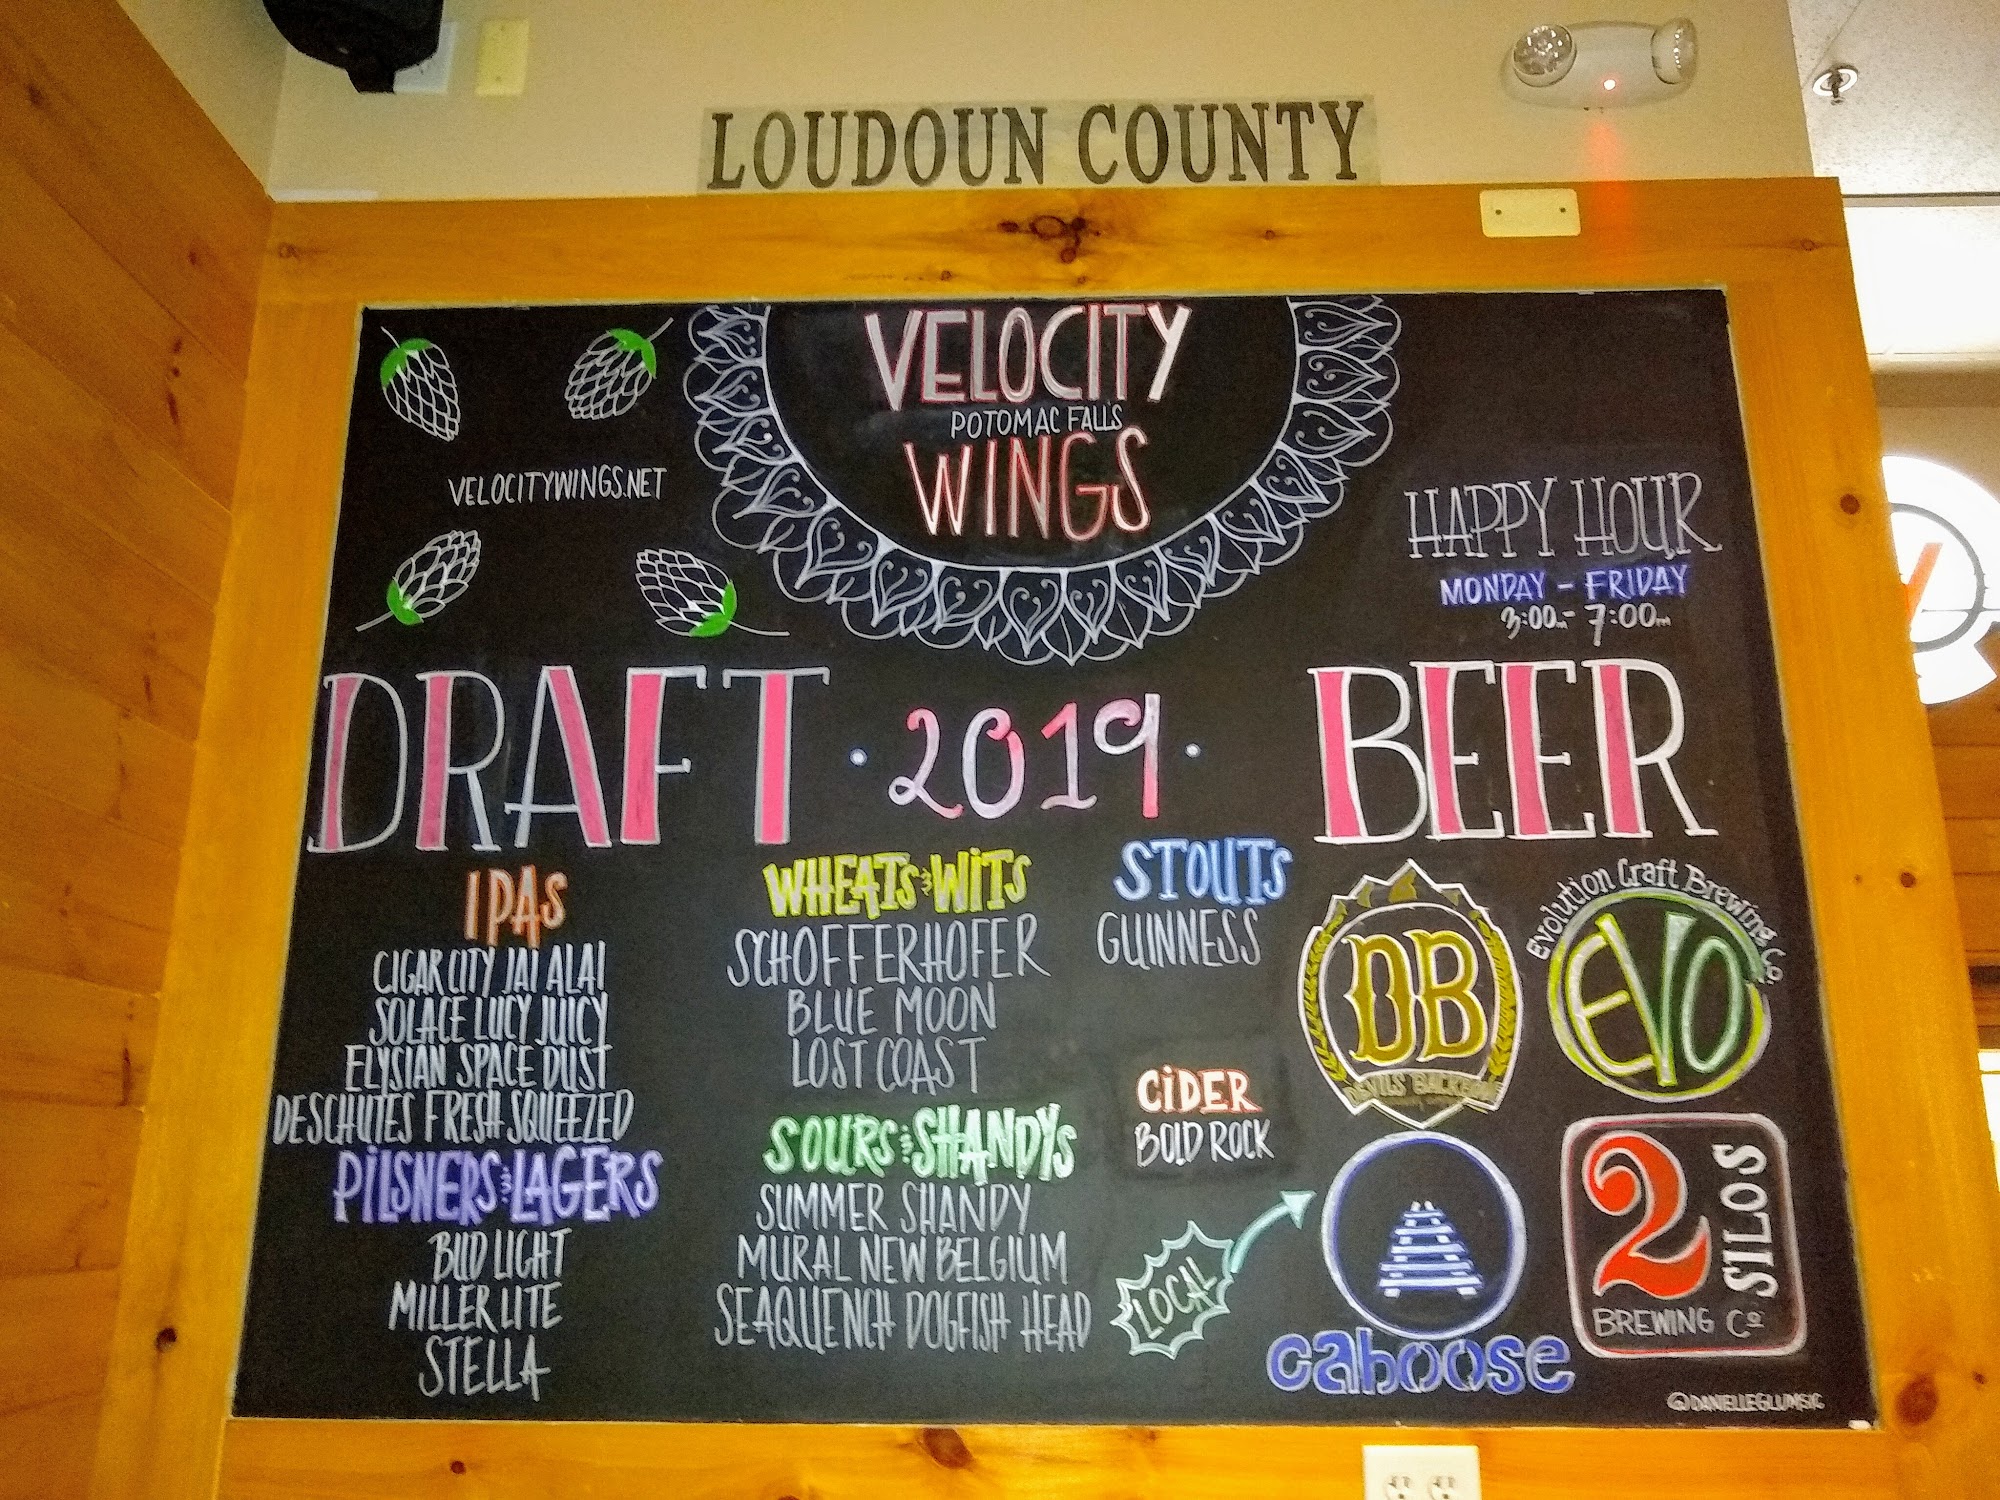 LOUDOUN COUNTY
VELOCITY
POTOMAC FALLS
WINGS
VELOCITYWINGS.NET
HAPPY HOUR
MONDAY - FRIDAY
3:00PM- 7:00PM
DRAFT · 2019 · BEER
IPAS
CIGAR CITY JAI ALAI
SOLACE LUCY JUICY
ELYSIAN SPACE DUST
DESCHUTES FRESH SQUEEZED
PILSNERS & LAGERS
BUD LIGHT
MILLER LITE
STELLA
WHEATS & WITS
SCHOFFERHOFER
BLUE MOON
LOST COAST
SOURS & SHANDYS
SUMMER SHANDY
MURAL NEW BELGIUM
SEAQUENCH DOGFISH HEAD
STOUTS
GUINNESS
CIDER
BOLD ROCK
LOCAL
DB
DEVILS BACKBONE
Evolution Craft Brewing Co.
EVO
caboose
2
SILOS
BREWING Co
@DANIELLEGLUMSIC